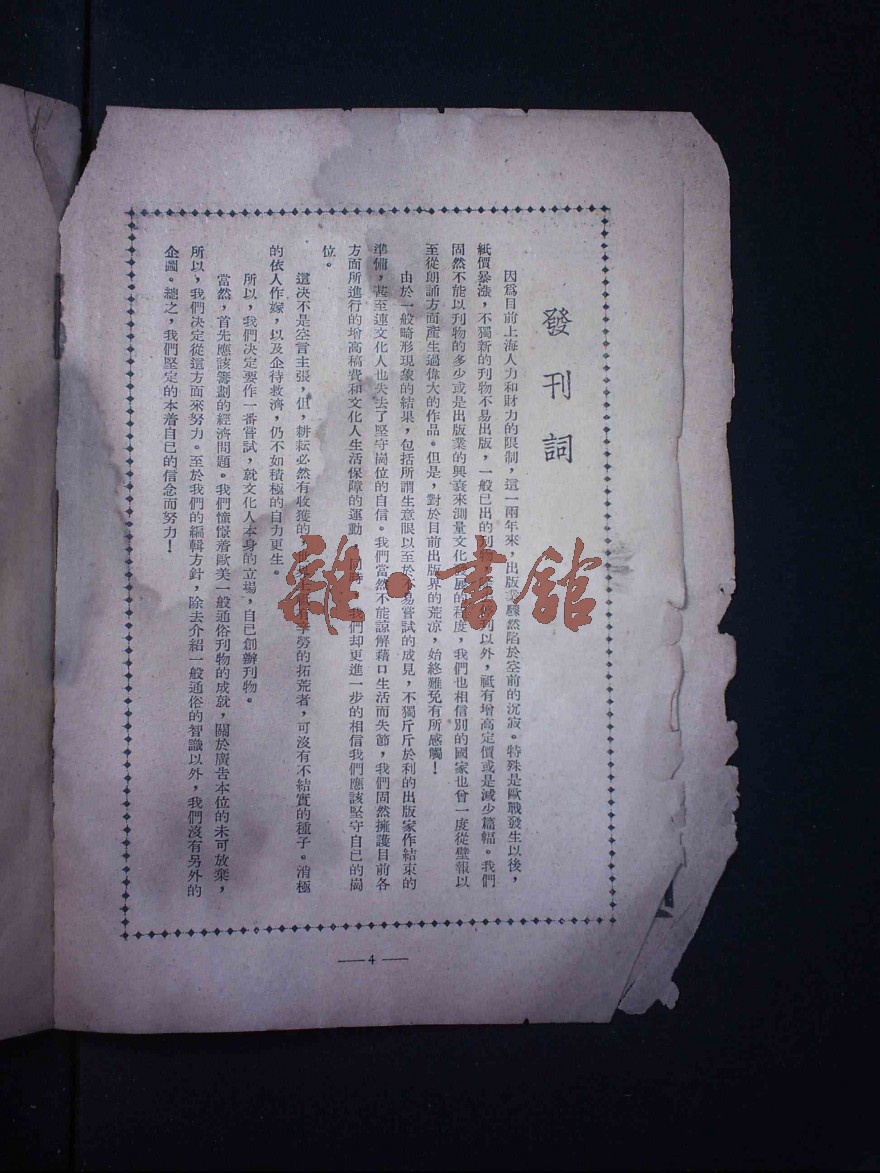 發刊詞
因爲目前上海人力和財力的限制，這一兩年來，出版業驟然陷於空前的沉寂。特殊是歐戰發生以後，
紙價暴漲，不獨新的刊物不易出版，一般已出的刊物以外，祇有增高定價或是減少篇幅。我們
固然不能以刊物的多少或是出版業的興衰來測量文化發展的程度，我們也相信別的國家也曾一度從壁報以
至從朗誦方面產生過偉大的作品。但是，對於目前出版界的荒凉，始終難免有所感觸！
由於一般畸形現象的結果，包括所謂生意眼以至於易嘗試的成見，不獨斤斤於利的出版家作結束的
準備，甚至連文化人也失去了堅守崗位的自信。我們當然不能諒解藉口生活而失節，我們固然擁護目前各
方面所進行的增高稿費和文化人生活保障的運動，同時，我們却更進一步的相信我們應該堅守自已的崗
位。
這决不是空言主張，但，耕耘必然有收獲的，勞的拓荒者，可沒有不結實的種子。消極
的依人作嫁，以及企待救濟，仍不如積極的自力更生。
所以，我們决定要作一番嘗試，就文化人本身的立場，自已創辦刊物。
當然，首先應該籌劃的經濟問題。我們憧憬着歐美一般通俗刊物的成就，關於廣告本位的未可放棄，
所以，我們决定從這方面來努力。至於我們的編輯方針，除去介紹一般通俗的智識以外，我們沒有另外的
企圖。總之，我們堅定的本着自已的信念而努力！
—4—
雜·書館